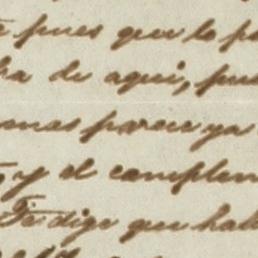 pues que lo p
ha de aqui, pue
ones parece ya
y el complem
Te dige que hab